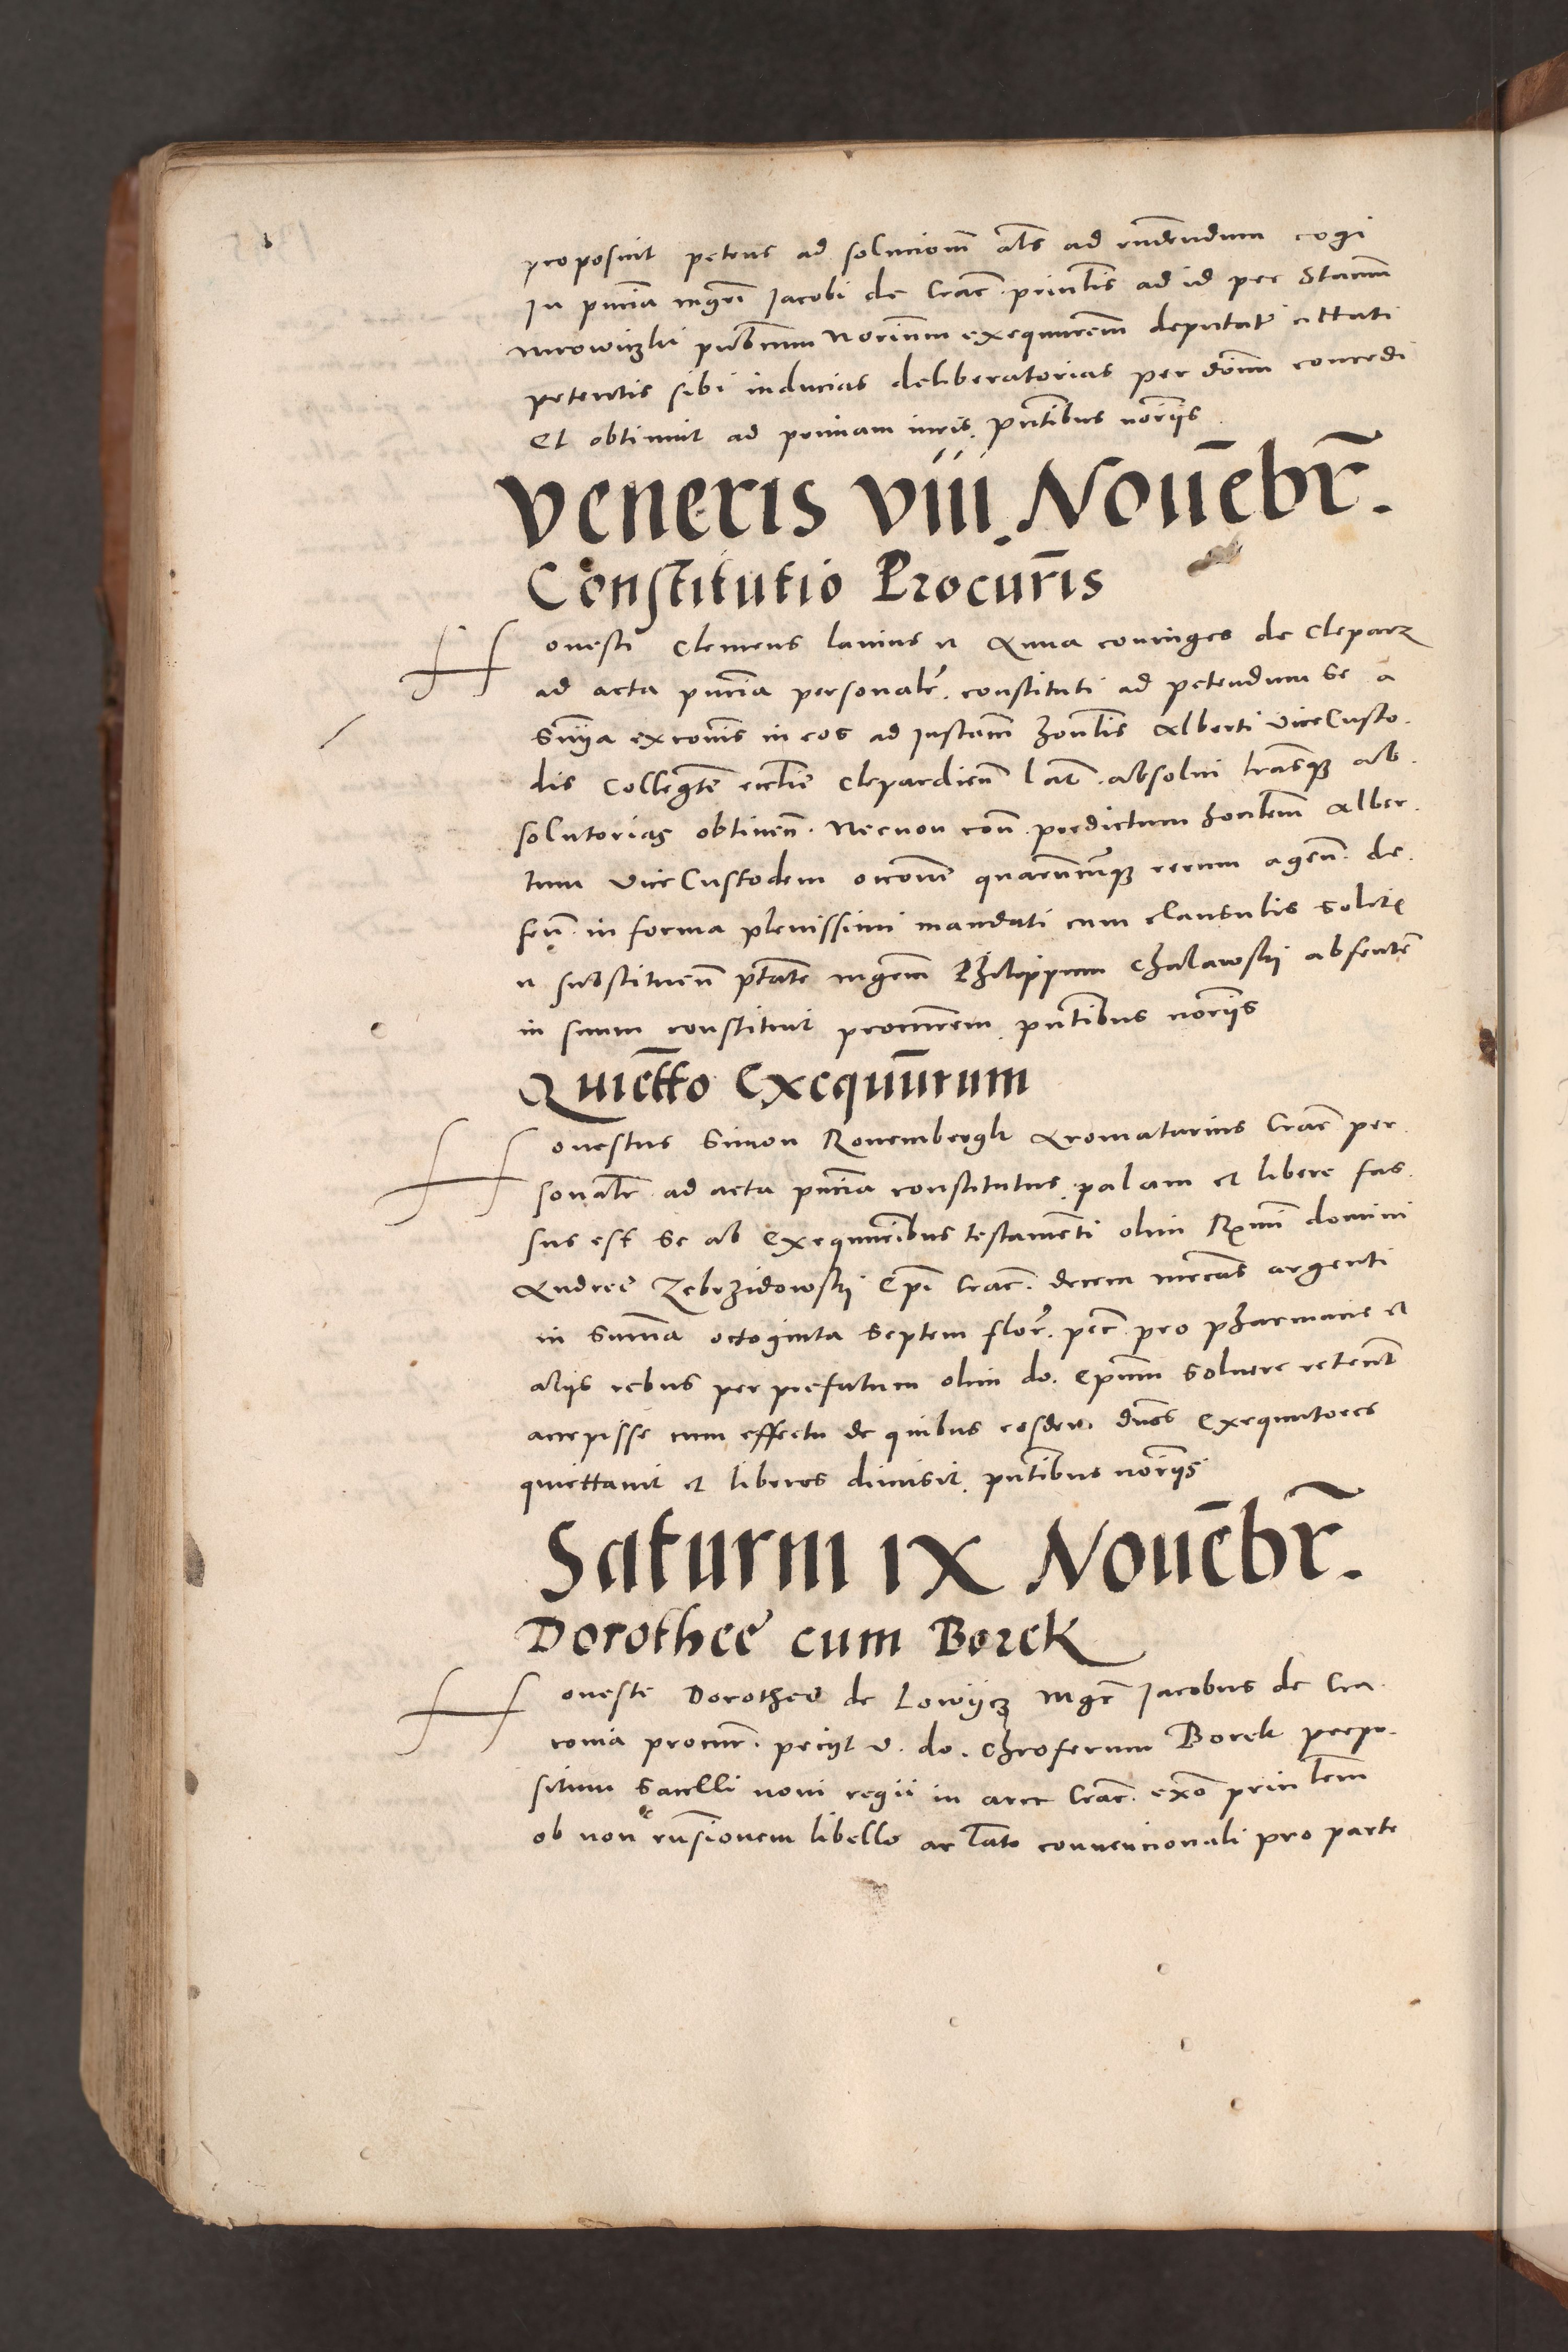 proposuit petens ad solucionē als ad rñdendum cogi
In pñcia mgri Jacobi de Crac. principlis ad id per Stanm
mrowinski publicum Norium exequutorem deputat cittati
petentis sibi inducias deliberatorias per dōm concedi
Et obtinuit ad primam iuris. pntibus noriis
Veneris viii. Novēbr̄.
Constitutio Procur̄is
Honesti Clemens lanius et Anna coniuges de Cleparz
ad acta pñcia personalr̄. constituti ad petendum se a
snīia excōmis in eos ad Instam honblis Alberti ViceCusto.
dis Collegte ecclie Clepardieñ lat. absolvi lrasq3 ab.
solutorias obtineñ. Necnon coñ. predictum honblem Alber.
tum ViceCustodem oīcōm quarumcūq3 rerum ageñ. de.
feñ. in forma plenissimi mandati cum clausulis solitę
et substitueñ ptate mgrm Philippum Chalawski absentē
in suum constituit procurrem. pntibus noriis
Quietto Exequūrum
Honestus Simon Ronembergk Aromatarius Crac per.
sonalr̄ ad acta pñcia constitutus. palam et libere fas.
sus est se ab Exequutribus testamenti olim Rxmi domini
Andreę Zebrzidowski Epī Crac. decem mrcas argenti
in summa octoginta septem flor̄. pec pro pharmacie et
aliis rebus per prefatum olim do. Epum solvere retent
accepisse cum effectu de quibus eosdem. dños Exequutores
quiettavit et liberos dimisit. pntibus noriis
Saturni ix Novēbr̄.
Dorotheę cum Borek
Honeste Dorotheę de Lowijcz mgr Jacobus de Cra.
covia procur. peciit v. do. Chroferum Borek prepo.
situm Sacelli novi regii in arce Crac. exō principlem
ob non rñsionem libello ac lato convencionali pro parte